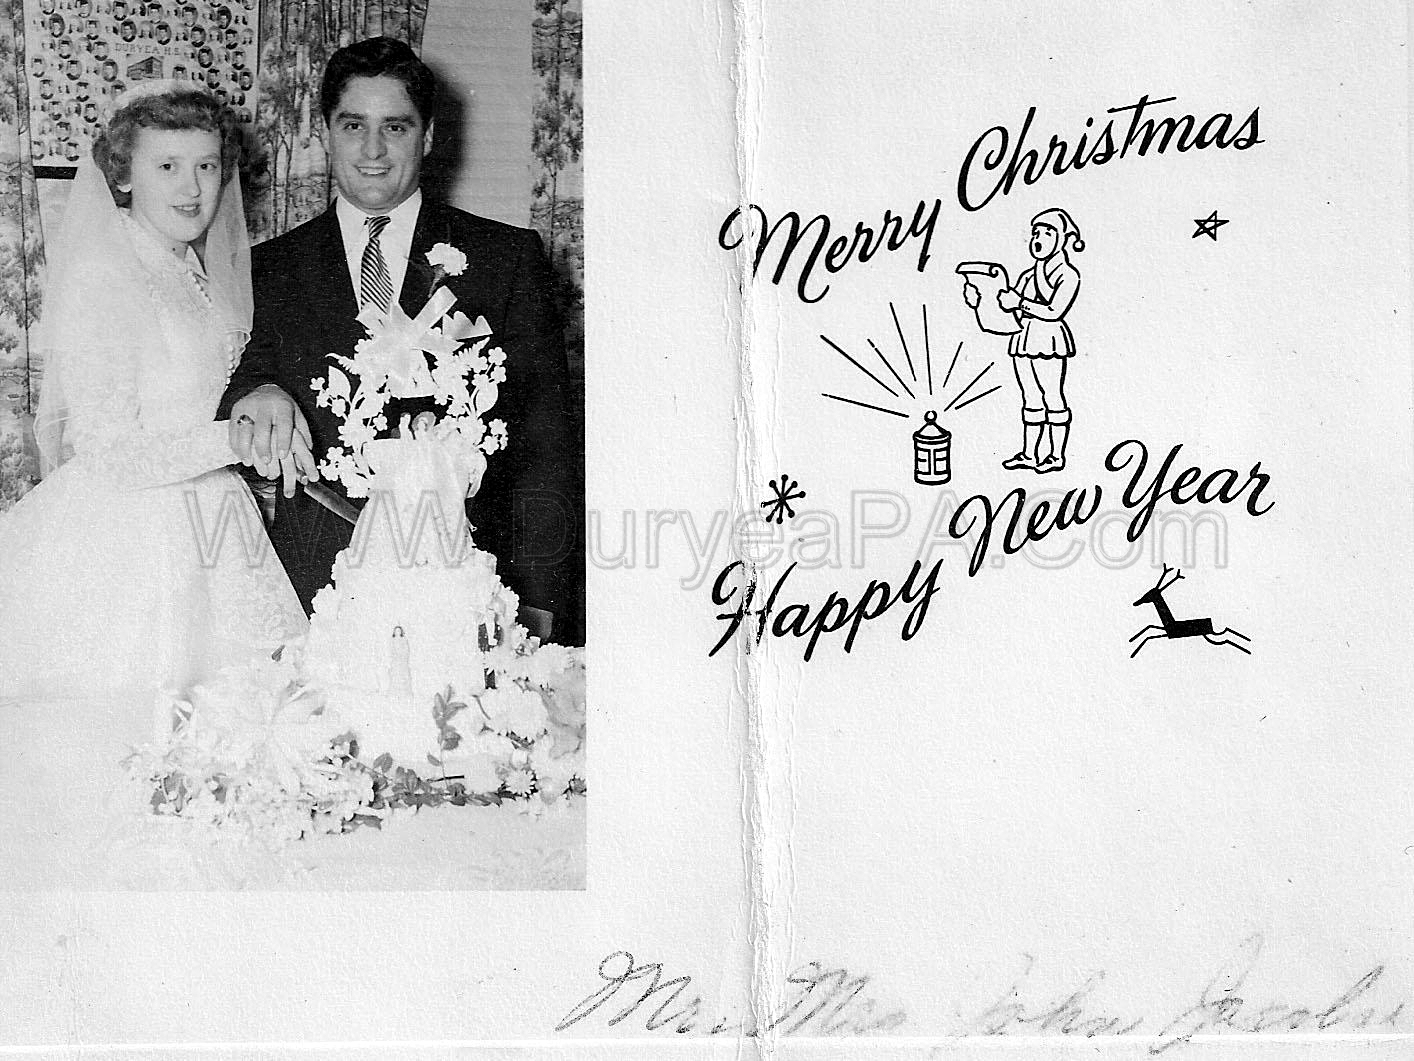 DURYEA H.S.
Merry Christmas
WWW.DuryeaPA.Com
Happy New Year
Mr. Mrs John Jacobs